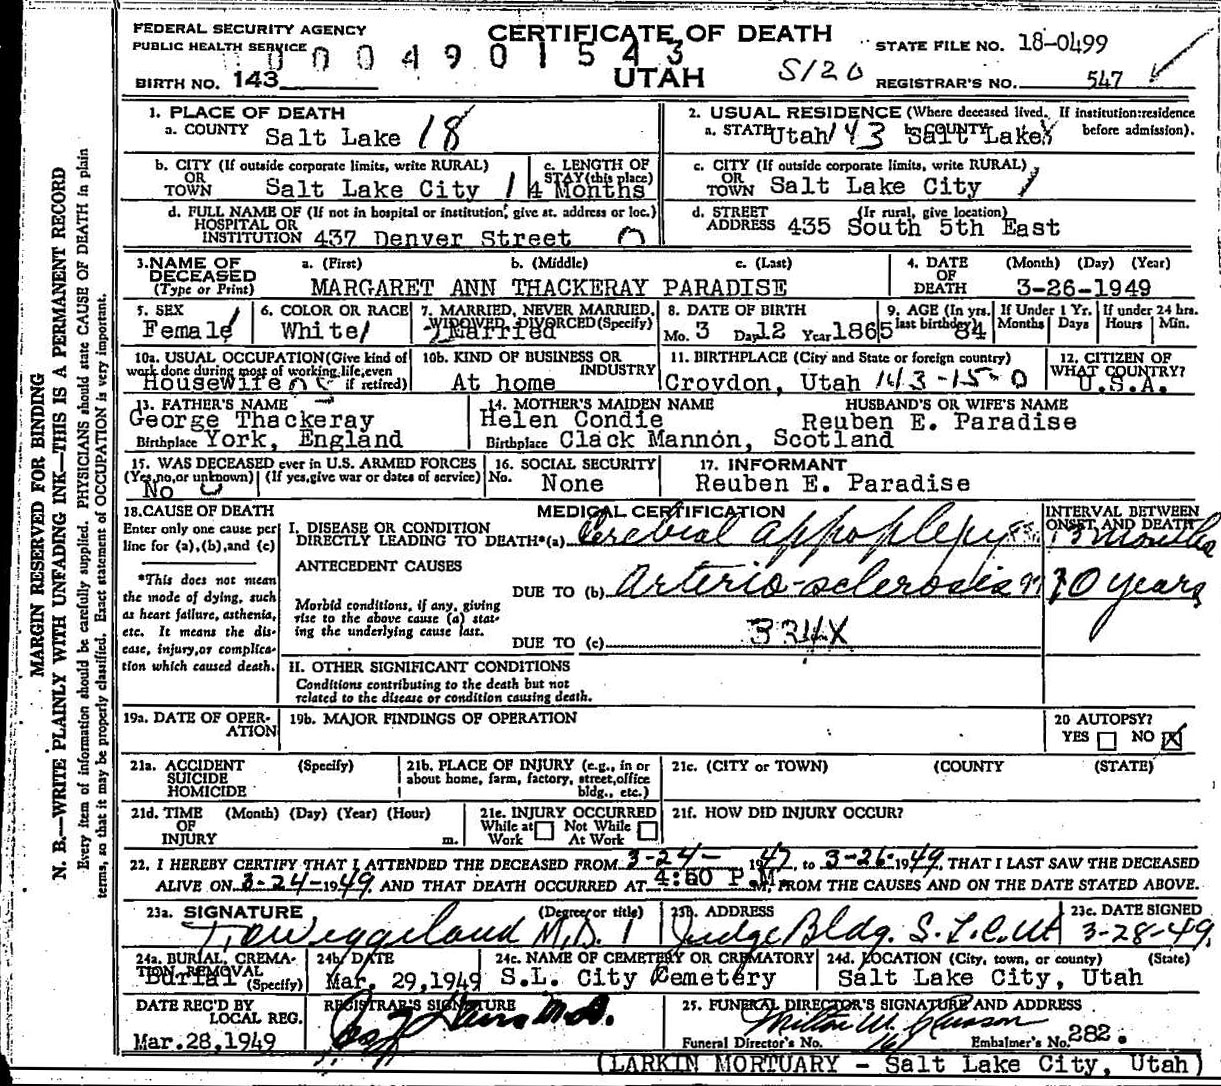 FEDERAL SECURITY AGENCY
PUBLIC HEALTH SERVICE
CERTIFICATE OF DEATH
UTAH
0004901543
S120
STATE FILE NO. 18-0499
BIRTH NO. 143
REGISTRAR'S NO. 547
MARGIN RESERVED FOR BINDING
N. B.—WRITE PLAINLY WITH UNFADING INK—THIS IS A PERMANENT RECORD
Every item of information should be carefully supplied. PHYSICIANS should state CAUSE OF DEATH in plain
terms, so that it may be properly classified. Exact statement of OCCUPATION is very important.
1. PLACE OF DEATH
a. COUNTY Salt Lake 18
2. USUAL RESIDENCE (Where deceased lived. If institution: residence
before admission).
a. STATE Utah 143 b. COUNTY Salt Lake
b. CITY (If outside corporate limits, write RURAL)
OR
TOWN Salt Lake City 1
c. LENGTH OF
STAY (this place)
4 Months
c. CITY (If outside corporate limits, write RURAL)
OR
TOWN Salt Lake City
d. FULL NAME OF (If not in hospital or institution, give st. address or loc.)
HOSPITAL OR
INSTITUTION 437 Denver Street
d. STREET (If rural, give location)
ADDRESS 435 South 5th East
3. NAME OF DECEASED
(Type or Print)
a. (First) b. (Middle) c. (Last)
MARGARET ANN THACKERAY PARADISE
4. DATE OF DEATH (Month) (Day) (Year)
3-26-1949
5. SEX
Female
6. COLOR OR RACE
White
7. MARRIED, NEVER MARRIED,
WIDOWED, DIVORCED (Specify)
Married
8. DATE OF BIRTH
Mo. 3 Day 12 Year 1865
9. AGE (In yrs. last birthday) 84
If Under 1 Yr. Months Days
If under 24 hrs. Hours Min.
10a. USUAL OCCUPATION (Give kind of
work done during most of working life, even
if retired)
Housewife
10b. KIND OF BUSINESS OR
INDUSTRY
At home
11. BIRTHPLACE (City and State or foreign country)
Croydon, Utah 143-15-0
12. CITIZEN OF
WHAT COUNTRY?
U.S.A.
13. FATHER'S NAME
George Thackeray
Birthplace York, England
14. MOTHER'S MAIDEN NAME
Helen Condie
Birthplace Clack Mannon, Scotland
HUSBAND'S OR WIFE'S NAME
Reuben E. Paradise
15. WAS DECEASED ever in U.S. ARMED FORCES
(Yes, no, or unknown) (If yes, give war or dates of service)
No
16. SOCIAL SECURITY
No. None
17. INFORMANT
Reuben E. Paradise
18. CAUSE OF DEATH
Enter only one cause per
line for (a), (b), and (c)
*This does not mean
the mode of dying, such
as heart failure, asthenia,
etc. It means the dis-
ease, injury, or complica-
tion which caused death.
MEDICAL CERTIFICATION
INTERVAL BETWEEN
ONSET AND DEATH
I. DISEASE OR CONDITION
DIRECTLY LEADING TO DEATH* (a) Cerebral appoplexy
Months
ANTECEDENT CAUSES
DUE TO (b) Arterio-sclerosis
10 years
Morbid conditions, if any, giving
rise to the above cause (a) stat-
ing the underlying cause last.
DUE TO (c)
334X
II. OTHER SIGNIFICANT CONDITIONS
Conditions contributing to the death but not
related to the disease or condition causing death.
19a. DATE OF OPER-
ATION
19b. MAJOR FINDINGS OF OPERATION
20 AUTOPSY?
YES NO X
21a. ACCIDENT
SUICIDE
HOMICIDE
(Specify)
21b. PLACE OF INJURY (e.g., in or
about home, farm, factory, street, office
bldg., etc.)
21c. (CITY or TOWN) (COUNTY) (STATE)
21d. TIME (Month) (Day) (Year) (Hour)
OF
INJURY m.
21e. INJURY OCCURRED
While at Work Not While At Work
21f. HOW DID INJURY OCCUR?
22. I HEREBY CERTIFY THAT I ATTENDED THE DECEASED FROM 3-24- 1947, to 3-26-1949, THAT I LAST SAW THE DECEASED
ALIVE ON 3-24-1949, AND THAT DEATH OCCURRED AT P.M., FROM THE CAUSES AND ON THE DATE STATED ABOVE.
23a. SIGNATURE (Degree or title)
M.D.
23b. ADDRESS
Judge Bldg. S.L.C. Ut
23c. DATE SIGNED
3-28-49
24a. BURIAL, CREMA-
TION, REMOVAL
(Specify)
Burial
24b. DATE
Mar. 29, 1949
24c. NAME OF CEMETERY OR CREMATORY
S.L. City Cemetery
24d. LOCATION (City, town, or county) (State)
Salt Lake City, Utah
DATE REC'D BY
LOCAL REG.
Mar. 28, 1949
REGISTRAR'S SIGNATURE
M.D.
25. FUNERAL DIRECTOR'S SIGNATURE AND ADDRESS
Milton W.
Funeral Director's No. Embalmer's No. 282.
(LARKIN MORTUARY - Salt Lake City, Utah)